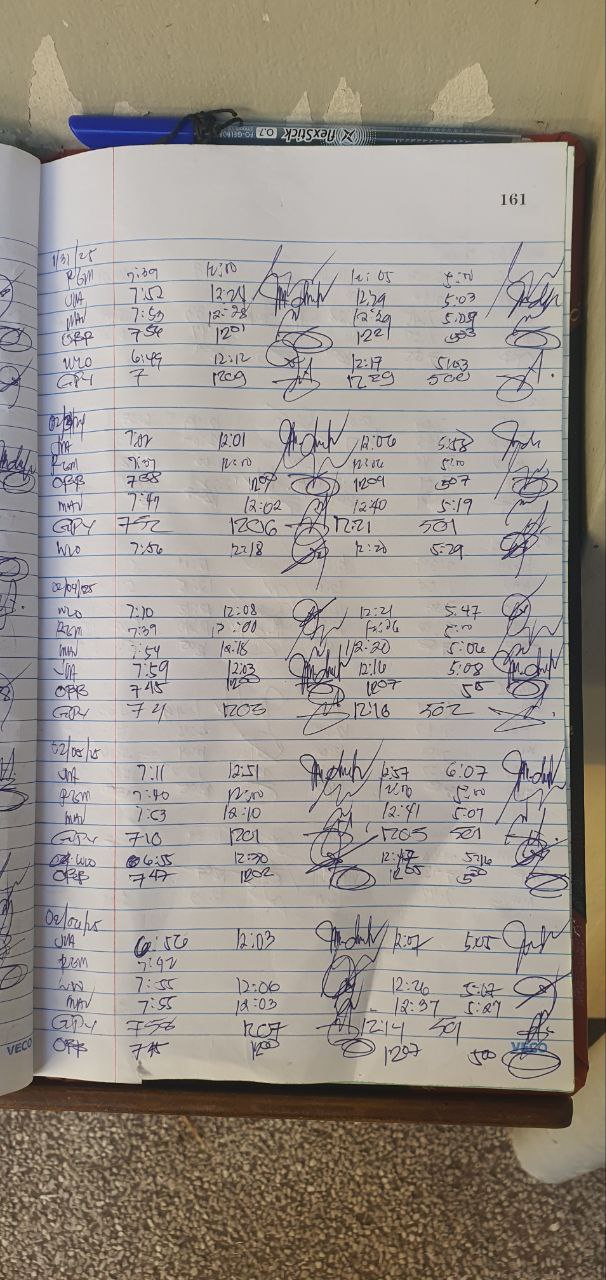 flexStick 0.7
161
1/31/25
RGM 7:39 12:00 12:05 5:00
JMA 7:52 12:21 12:29 5:03
MAV 7:53 12:28 12:29 5:09
OBB 756 1201 1221 503
WLO 6:49 12:12 12:17 5:03
GPY 7 1209 1229 500
JMA 7:02 12:01 12:06 5:58
RGM 7:07 12:00 12:06 5:00
OBB 758 1209 507
MAV 7:47 12:02 12:40 5:19
GPY 752 1206 1221 501
WLO 7:56 12:18 12:20 5:29
02/04/25
WLO 7:10 12:08 12:21 5:47
RGM 7:39 12:00 12:06 5:00
MAV 7:54 12:18 12:20 5:06
JMA 7:59 12:03 12:16 5:08
OBB 745 1200 1207 505
GPY 721 1203 12:18 502
02/05/25
JMA 7:11 12:51 12:57 6:07
RGM 7:40 12:00 12:00 5:00
MAV 7:53 12:10 12:41 5:07
GPY 710 1201 1205 501
WLO 6:55 12:30
OBB 747 1202 1255
02/06/25
JMA 6:56 12:03 12:07 5:05
RGM 7:42
WLO 7:55 12:06 12:26 5:17
MAV 7:55 12:03 12:37 5:27
GPY 756 1207 12:14 501
OBB 1200 1207 500
VECO VECO